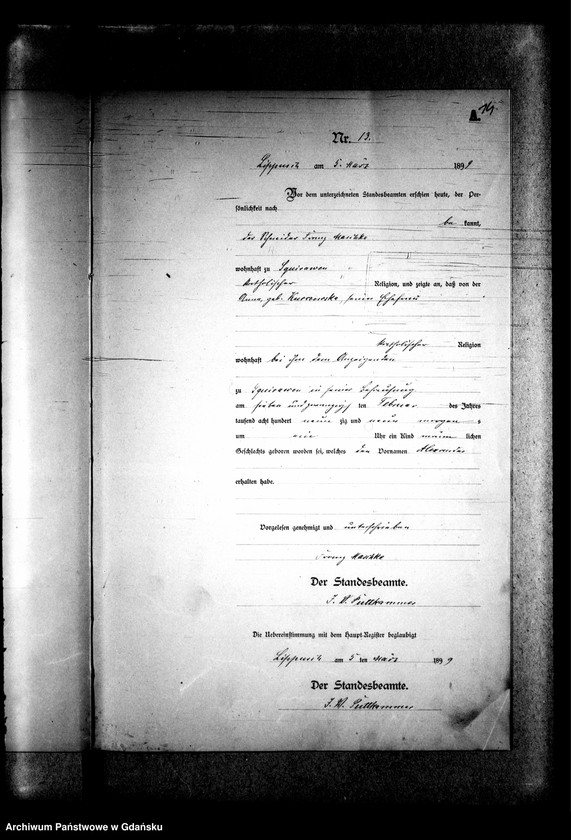 A 14.
Nr. 13.
Lippusch am 5. März 1899
Vor dem unterzeichneten Standesbeamten erschien heute, der Per-
sönlichkeit nach
be kannt,
der Schneider Franz
wohnhaft zu
katholischer Religion, und zeigte an, daß von der
Anna, geb. seiner Ehefrau
katholischer Religion
wohnhaft bei ihm dem Anzeigenden
zu in seiner Behausung
am sieben und zwanzigsten Februar des Jahres
tausend acht hundert neun zig und neun morgens
um ein Uhr ein Kind männlichen
Geschlechts geboren worden sei, welches den Vornamen Alexander
erhalten habe.
Vorgelesen genehmigt und unterschrieben
Franz
Der Standesbeamte.
Puttkammer
Die Uebereinstimmung mit dem Haupt-Register beglaubigt
Lippusch am 5 ten März 1899
Der Standesbeamte.
Puttkammer
Archiwum Państwowe w Gdańsku